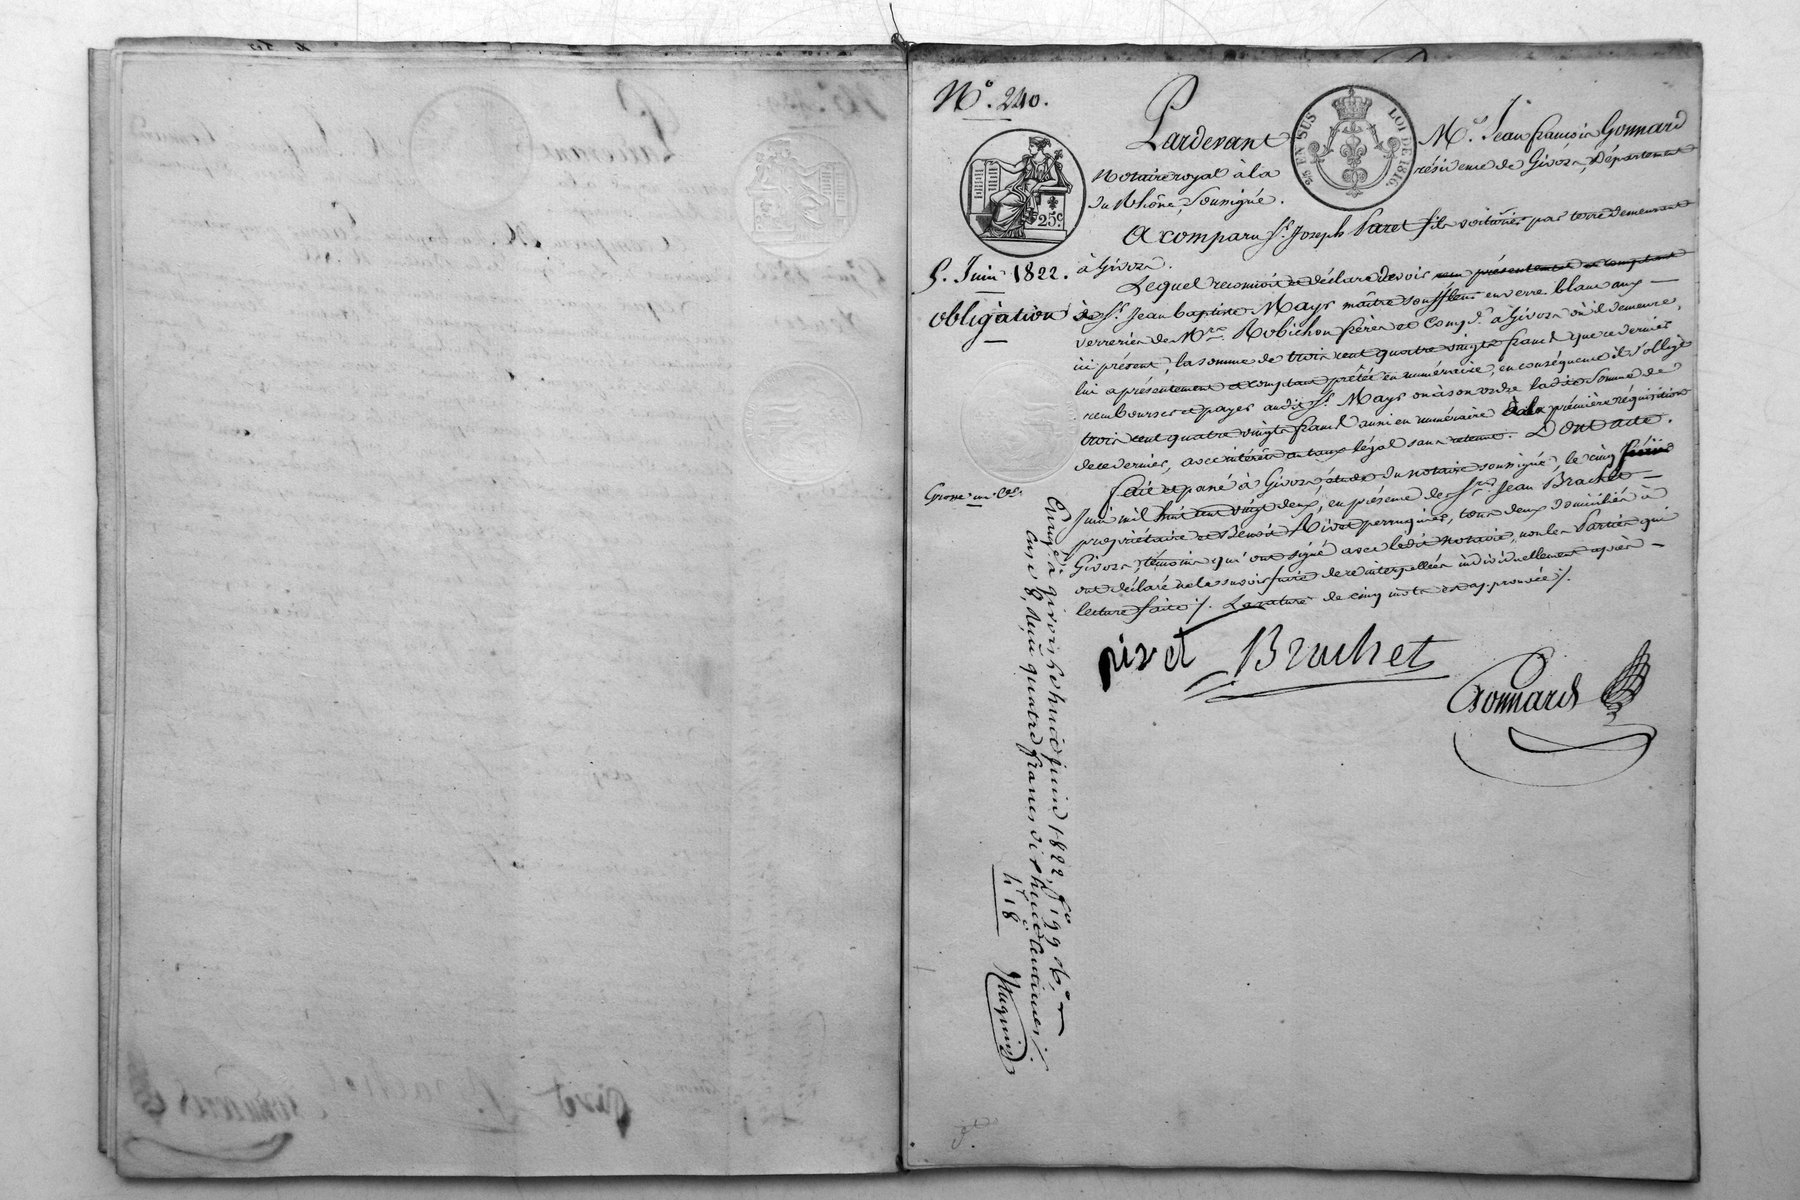 N.º 240.
Pardevant M.e Jean françois Gonnard
Notaire royal à la résidence de Givors, Département
du Rhône, Soussigné.
25 EN SUS LOI DE 1816.
25.c
A comparu S.r Joseph Paret fils voiturier par terre demeurant
à Givors.
5. Juin 1822.
obligation
Lequel reconnoit et déclare devoir présentement et comptant
à S.r Jean baptiste Mayr maître souffleur en verre blanc aux
verreries de M.rs Robichon frères et Comp.e à Givors où il demeure,
ici présent, la somme de trois cent quatre vingts francs que ce dernier
lui a présentement et comptant prêtée en numéraire, en conséquence il s'oblige
rembourser et payer audit S.r Mayr ou à son ordre ladite Somme de
trois cent quatre vingts francs aussi en numéraire à la première réquisition
de ce dernier, avec intérêts au taux légal sans retenue. Dont acte.
fait et passé à Givors, étude du notaire soussigné, le cinq
Juin mil huit cent vingt deux, en présence de S.rs Jean Brachet
propriétaire et Benoit Pivot perruquier, tous deux domiciliés à
Givors, témoins qui ont signé avec ledit notaire, non les Parties qui
ont déclaré ne le savoir faire de ce interpellées individuellement après
lecture faite ./. La rature de cinq mots est approuvée ./.
pivot Brachet
Gonnard
Enreg.é à Givors le huit juin 1822, f.º 199 R.º
case 8, reçu quatre francs dix huit centimes ./.
4.f 18